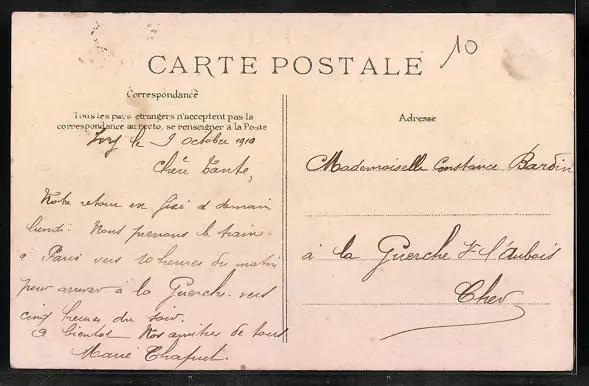 10
CARTE POSTALE
Correspondance
Tous les pays étrangers n'acceptent pas la
correspondance au recto, se renseigner à la Poste
Adresse
Ivry le 9 octobre 1910
Chère Tante,
Notre retour est fixé à demain
lundi. Nous prenons le train
à Paris vers 10 heures du matin
pour arriver à la Guerche vers
cinq heures du soir.
à bientot Nos amitiés de tous
Marie
Mademoiselle Constance Bardin
à la Guerche s/ l'Aubois
Cher